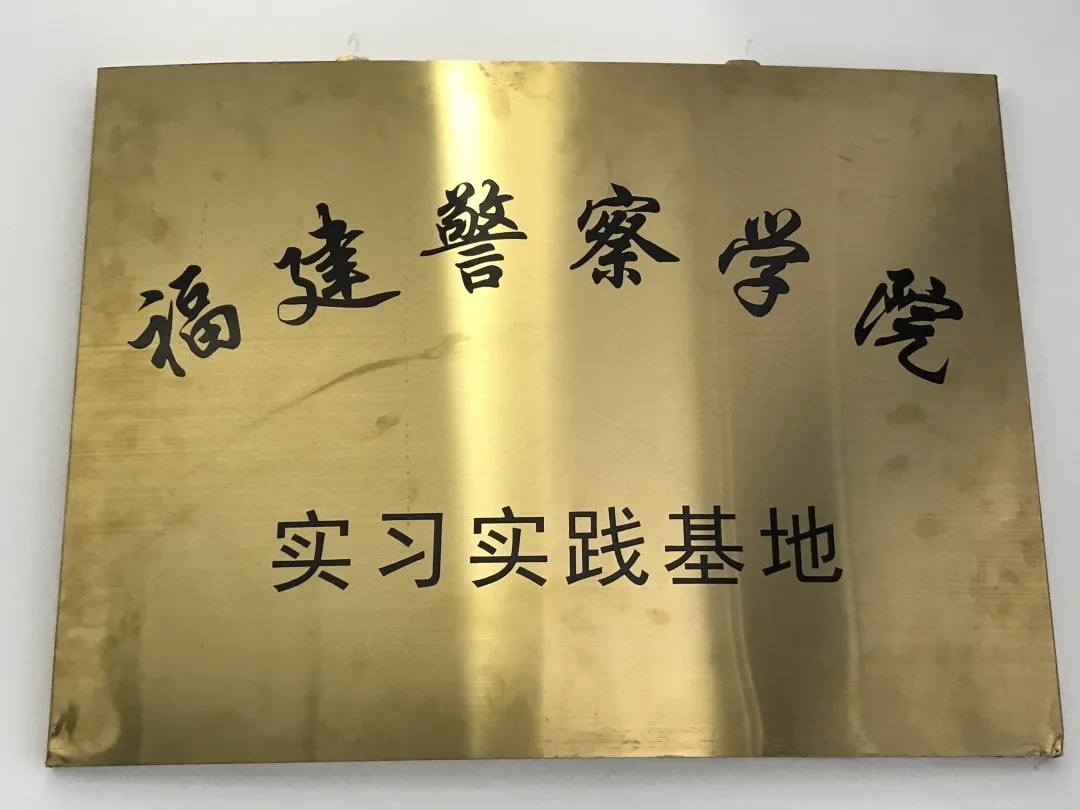 福建警察学院
实习实践基地